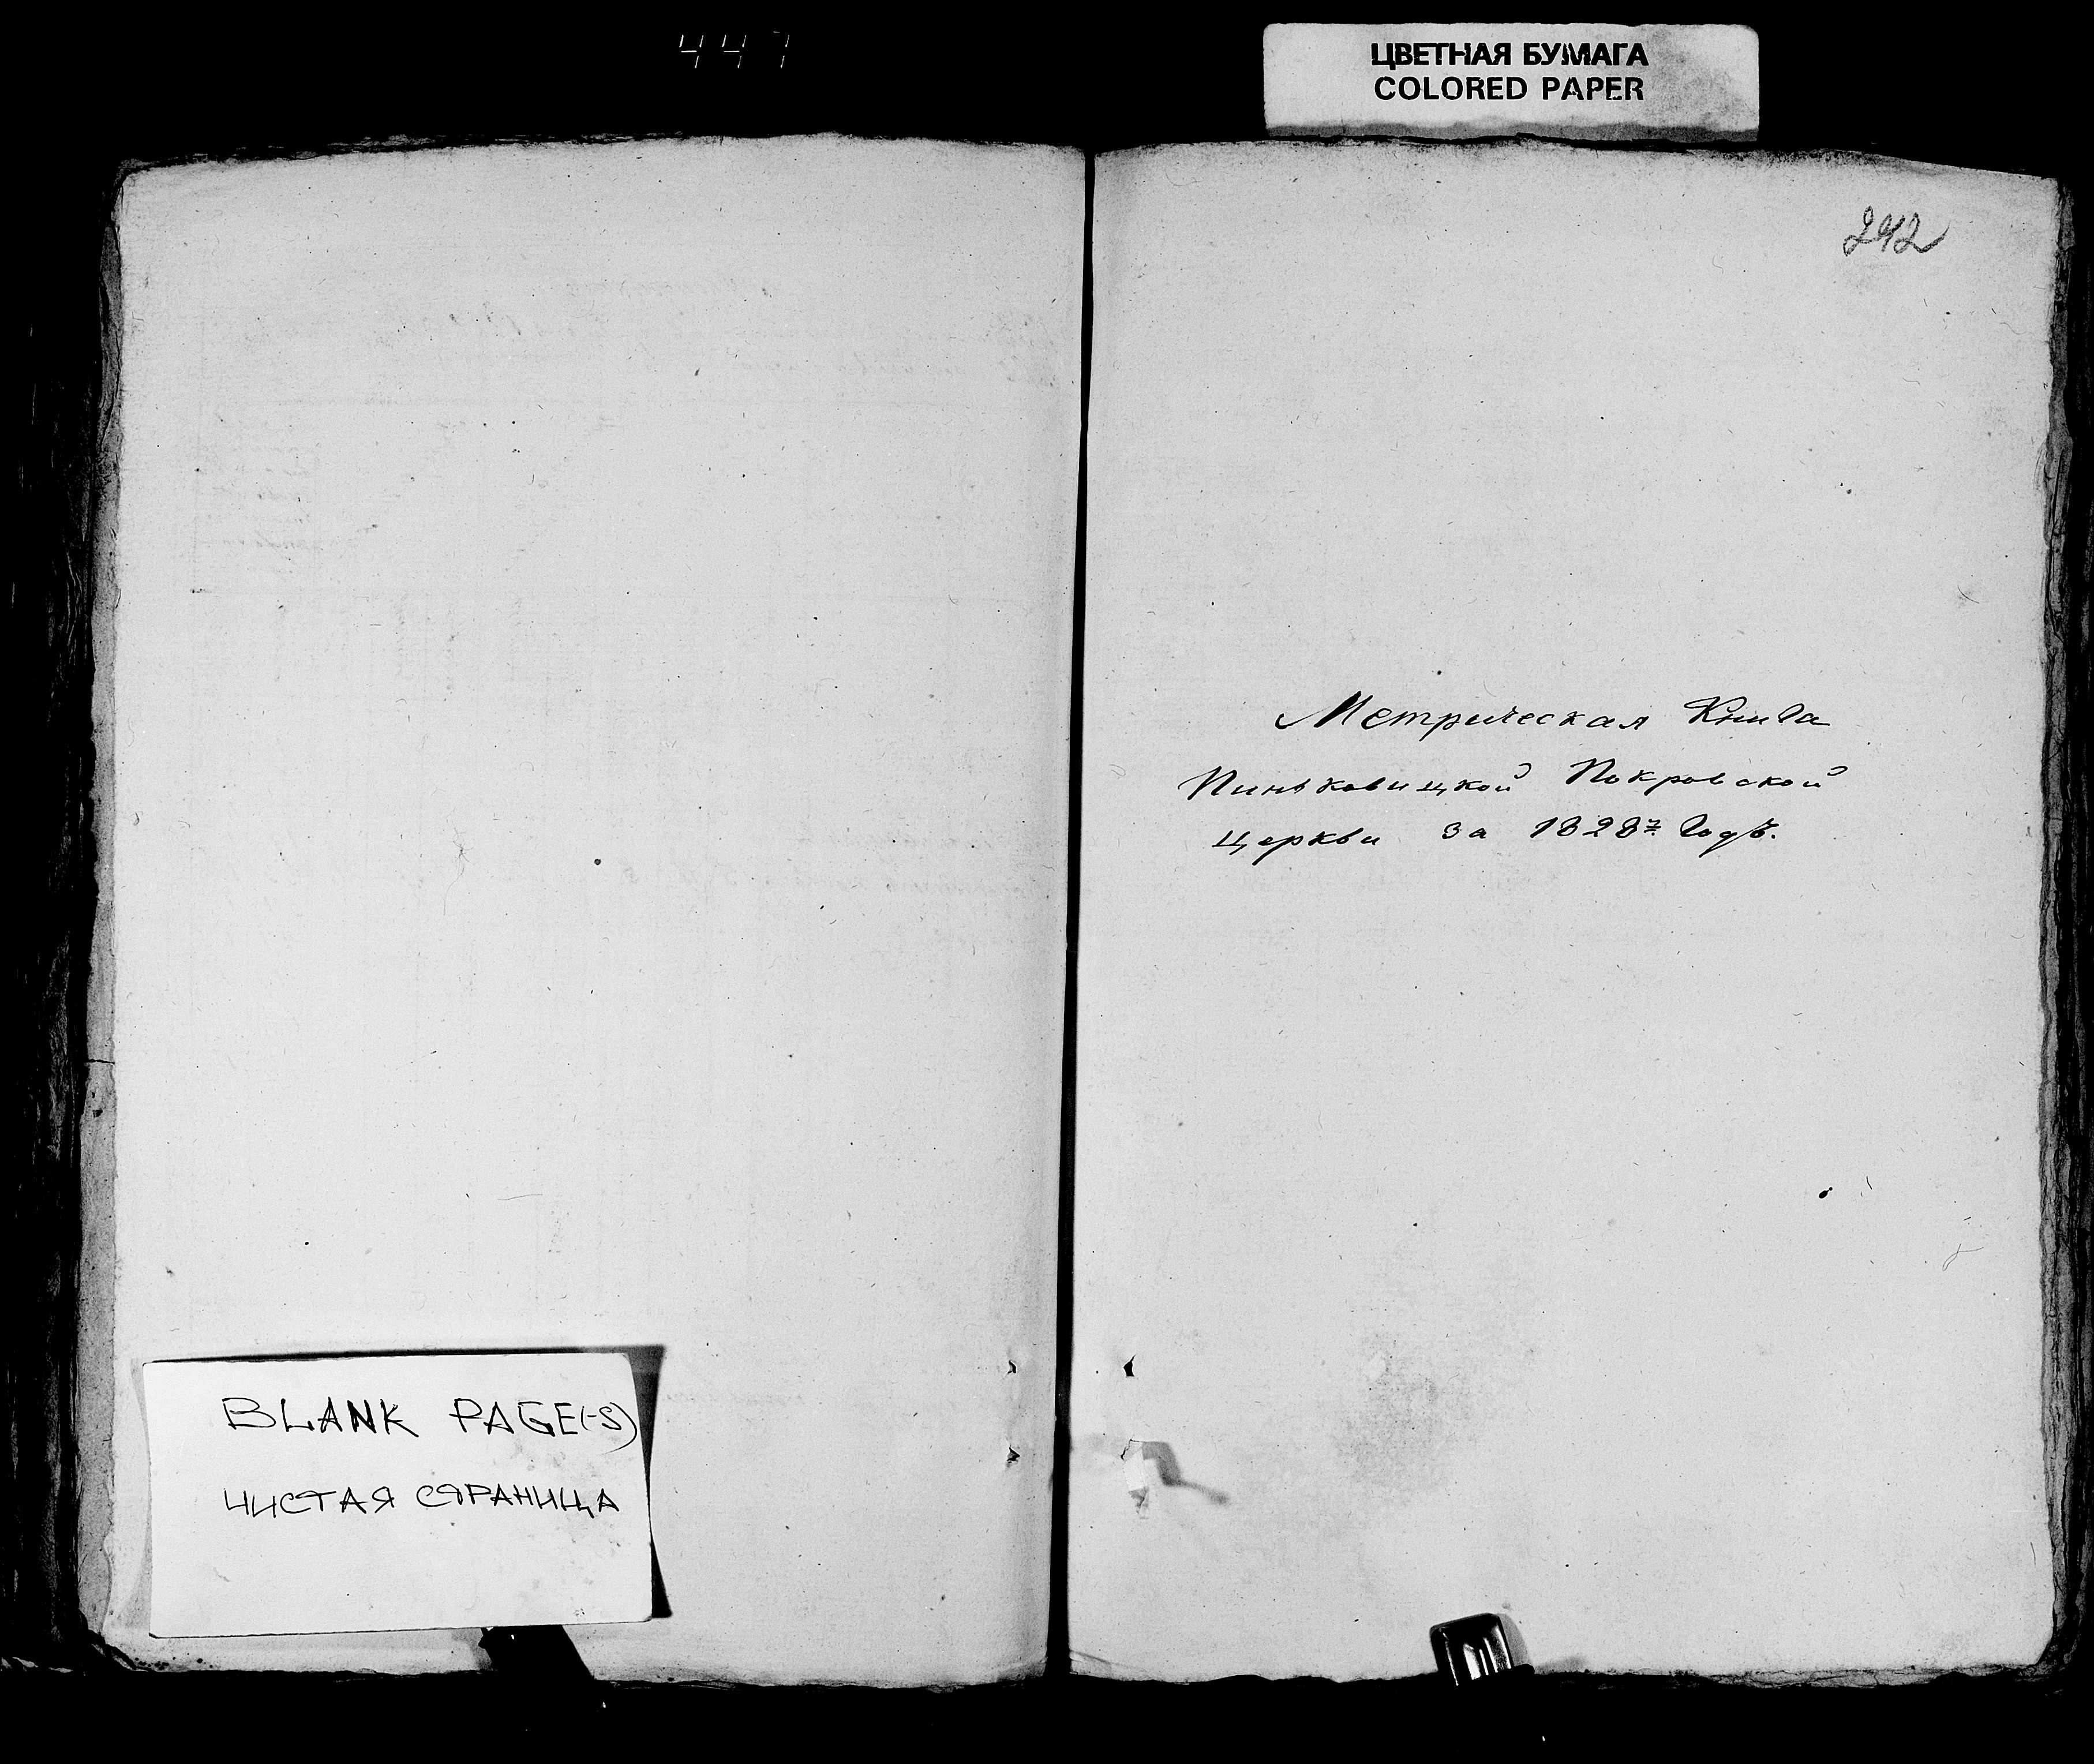 447
ЦВЕТНАЯ БУМАГА
COLORED PAPER
242
Метрическая Книга
Пиньковицкой Покровской
церкви за 1828й Годъ.
BLANK PAGE(-S)
ЧИСТАЯ СТРАНИЦА